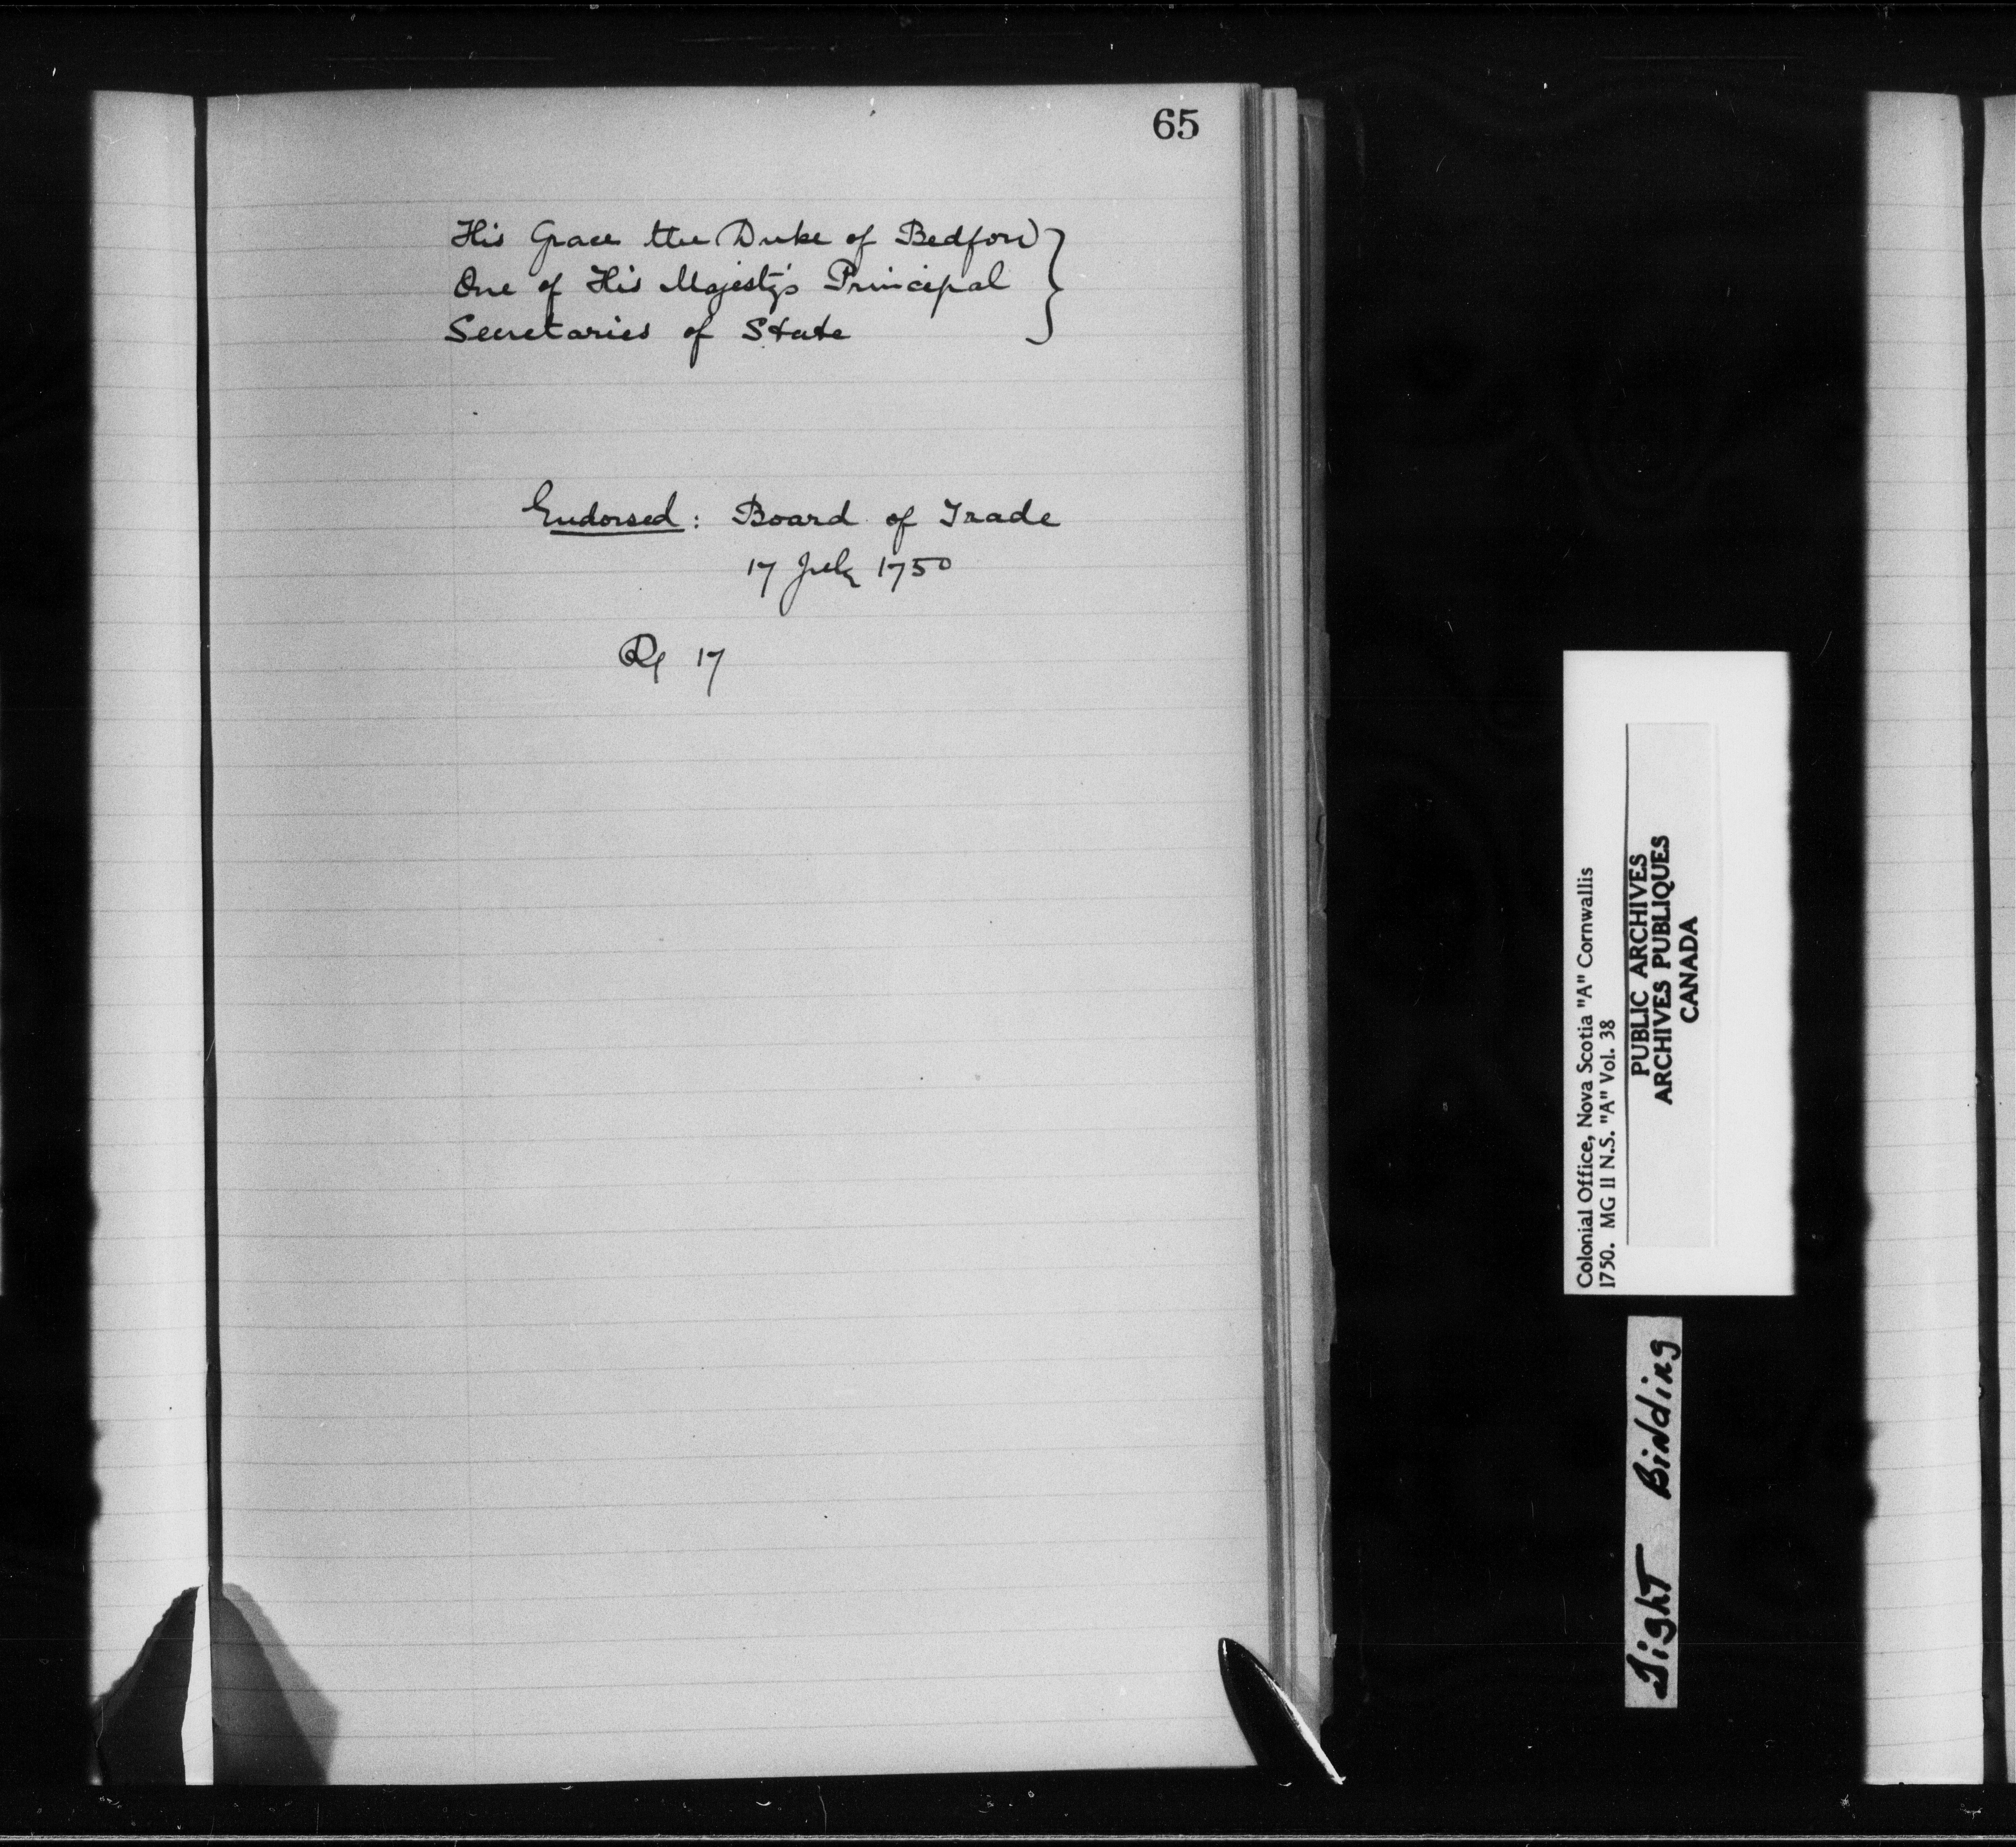 65
His Grace the Duke of Bedford
One of His Majesty's Principal
Secretaries of State
Endorsed: Board of Trade
17 July 1750
17
Colonial Office, Nova Scotia "A" Cornwallis
1750. MG 11 N.S. "A" Vol. 38
PUBLIC ARCHIVES
ARCHIVES PUBLIQUES
CANADA
Tight Binding